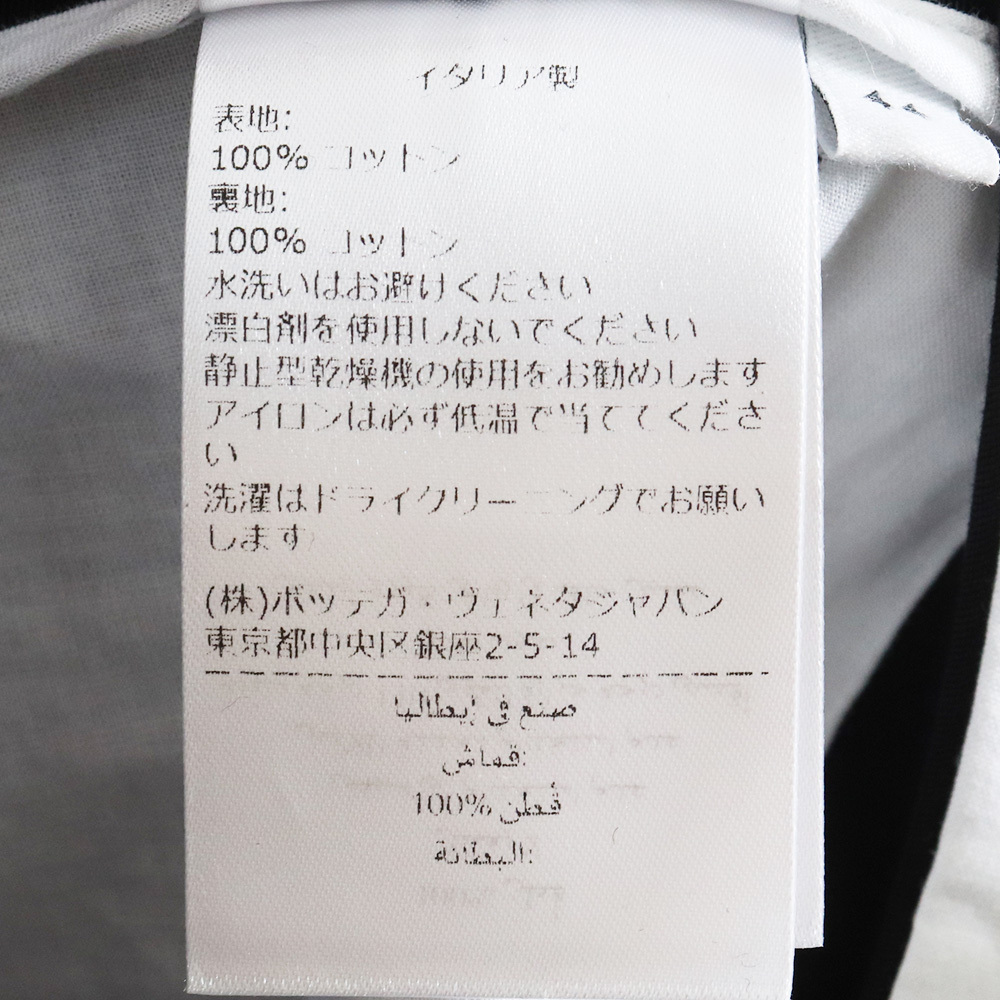 イタリア製
表地:
100% コットン
裏地:
100% コットン
水洗いはお避けください
漂白剤を使用しないでください
静止型乾燥機の使用をお勧めします
アイロンは必ず低温で当ててくださ
い
洗濯はドライクリーニングでお願い
します
(株)ボッテガ・ヴェネタジャパン
東京都中央区銀座2-5-14
صنع في إيطاليا
قماش:
قُطن %100
البطانة: